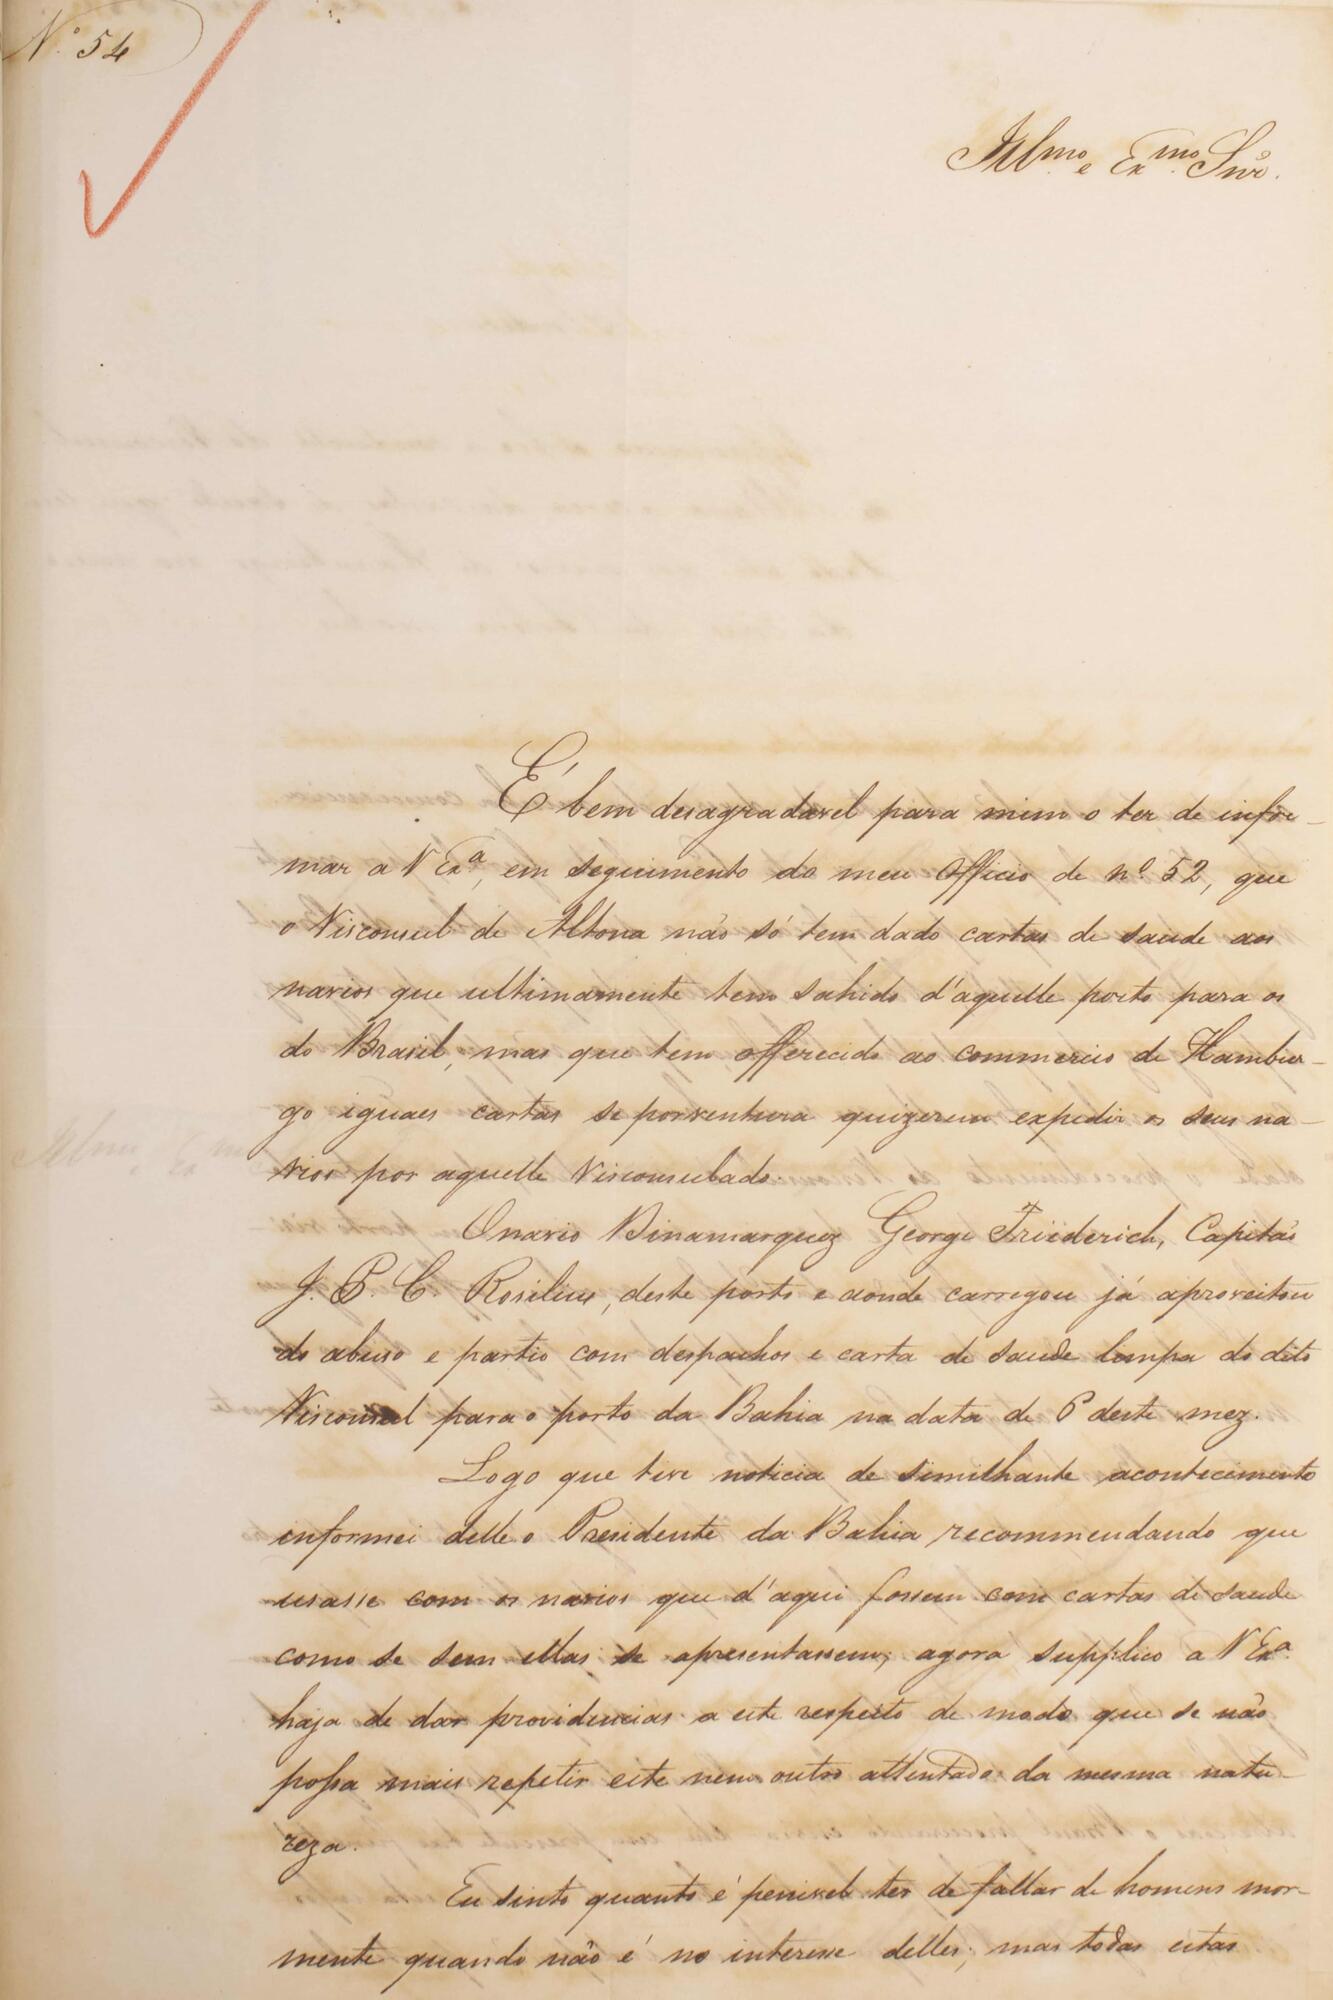 Nº 54
Illmo. e Exmo. Snr.
É bem desagradavel para mim o ter de infor-
mar a V Exª, em seguimento do meu Officio de nº 52, que
o Visconsul de Altona não só tem dado cartas de saude aos
navios que ultimamente tem sahido d'aquelle porto para os
do Brasil, mas que tem offerecido ao commercio de Hambur-
go iguaes cartas se porventura quizerem expedir os seus na-
vios por aquelle Visconsulado.
O navio Dinamarquez George Friederich, Capitão
J. P. C. Rosilius, deste porto e aonde carregou já aproveitou
do abuso e partio com despachos e carta de saude limpa do dito
Visconsul para o porto da Bahia na data de 6 deste mez.
Logo que tive noticia de similhante acontecimento
informei delle o Presidente da Bahia recommendando que
usasse com os navios que d'aqui fossem com cartas de saude
como se sem ellas se apresentassem; agora supplico a V Exª.
haja de dar providencias a este respeito de modo que se não
possa mais repetir este nem outro attentado da mesma natu-
reza.
Eu sinto quanto é penivel ter de fallar de homens mor-
mente quando não é no interesse delles; mas todas estas